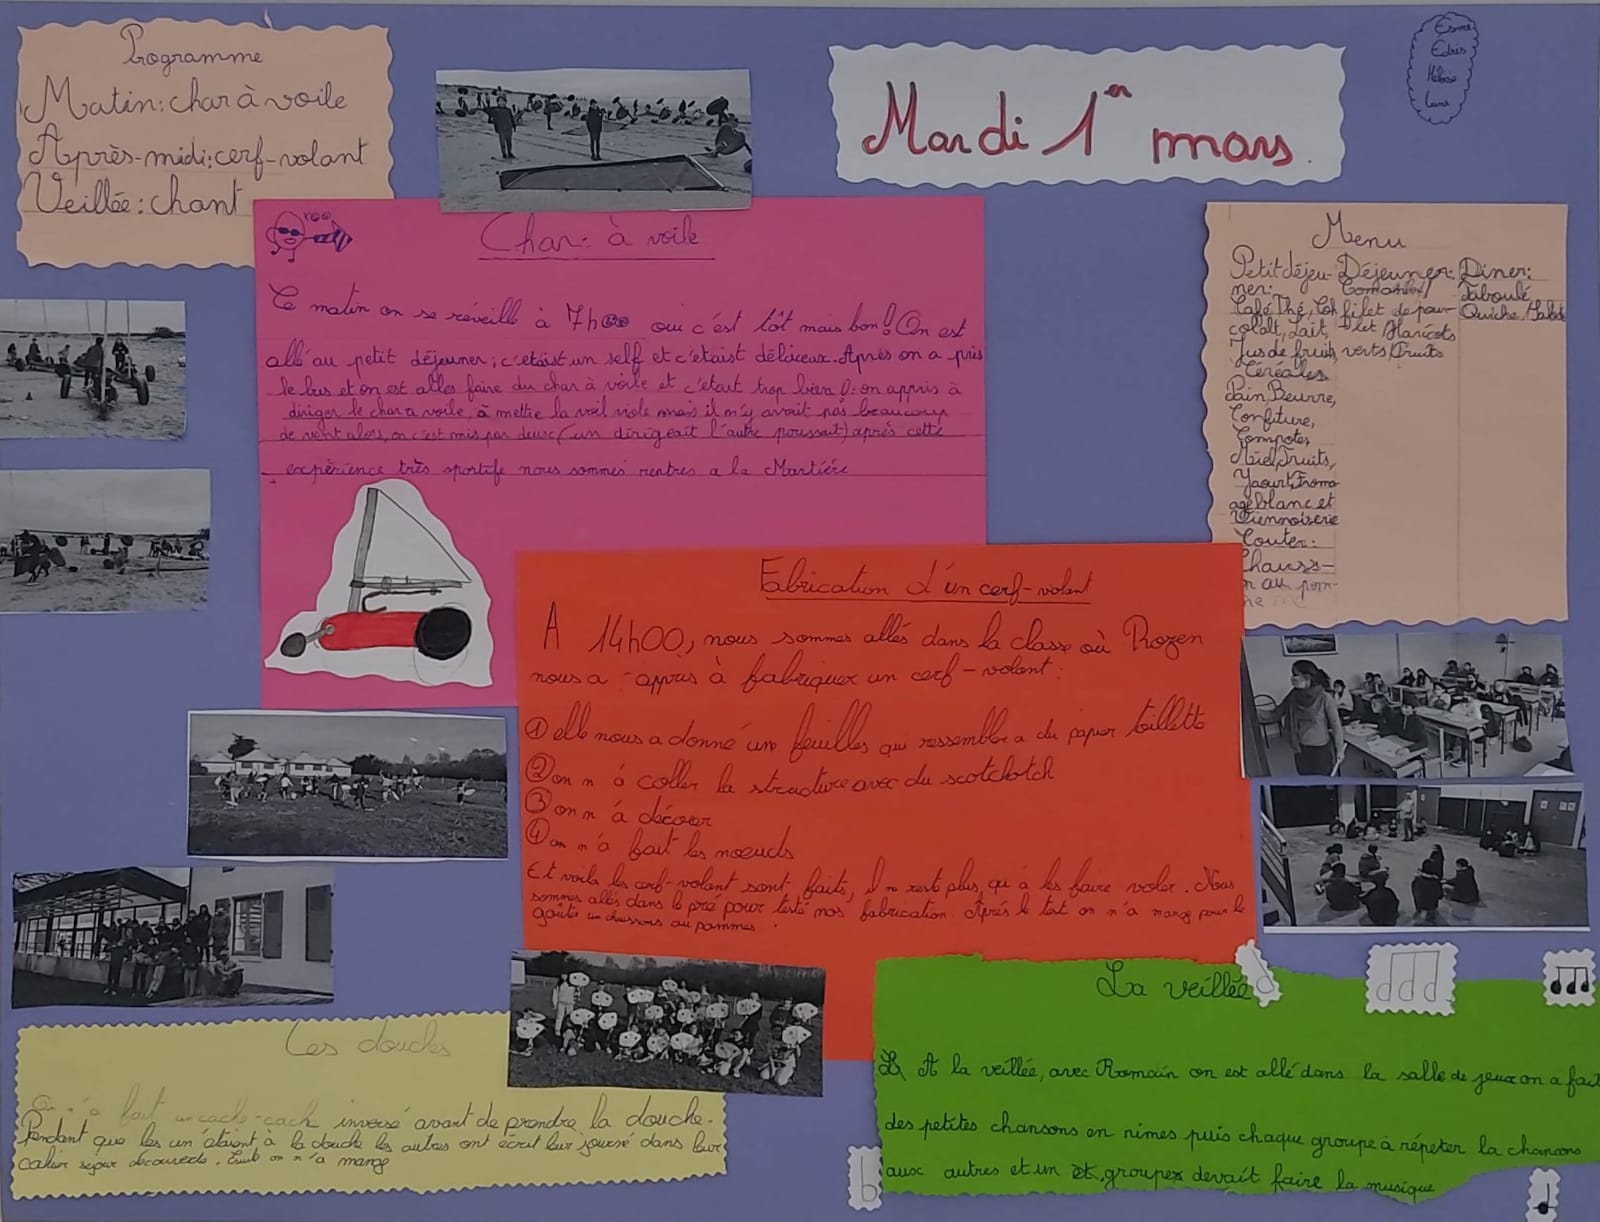 Programme
Matin: char à voile
Après-midi: cerf-volant
Veillée: chant
Mardi 1er mars.
Esmé
Edris
Héloïse
Luna
Char à voile
Ce matin on se réveille à 7h00 oui c'est tôt mais bon! On est
allé au petit déjeuner; c'étaist un self et c'etaist déliceux. Après on a pris
le bus et on est allés faire du char à voile et c'étaut trop bien !: on appris à
diriger le char a voile, à mettre la voil viole mais il n'y avait pas beaucoup
de vent alors, on c'est mis par deusc (un dirigeait l'autre poussait) après cette
expérience très sportife nous sommes rentres a la Martière
Menu
Petit déjeu-
ner:
Café Thé, Choh
colalt, Lait,
Jus de fruits,
Céréales
Pain, Beurre,
Confiture,
Compotes,
Miel, Fruits,
Yaourt, Froma
age blanc et
Viennoiserie
Gouter:
Chauss-
n au pom-
me
Déjeuner:
filet de pou-
let Haricots
verts Fruits
Diner:
Taboulé
Quiche /Salade
Fabrication d'un cerf-volant
A 14h00, nous sommes allés dans la classe où Rozen
nous a appris à fabriquer un cerf-volant:
① elle nous a donné un feuilles qui ressembler a du papier toillette
② on n'a coller la structure avec du scotchotch
③ on n'a décorer
④ on n'a fait les nœuds
Et voila les cerf-volant sont faits, il ne reste plus, qu'a les faire voler. Nous
sommes allés dans le pré pour testé nos fabrication. Après le test on n'a mangé pour le
goûter un chaussons au pommes.
Les douches
On n'a fait un cache-cach inversé avant de prendre la douche.
Pendant que les un étaient à la douche les autres ont écrit leur journé dans leur
cahier séjour découverte. Ensuite on n'a mangé
La veillée
A la veillée, avec Romain on est allé dans la salle de jeux on a fait
des petites chansons en rimes puis chaque groupe à répeter la chansons
ausc autres et un groupes devait faire la musique